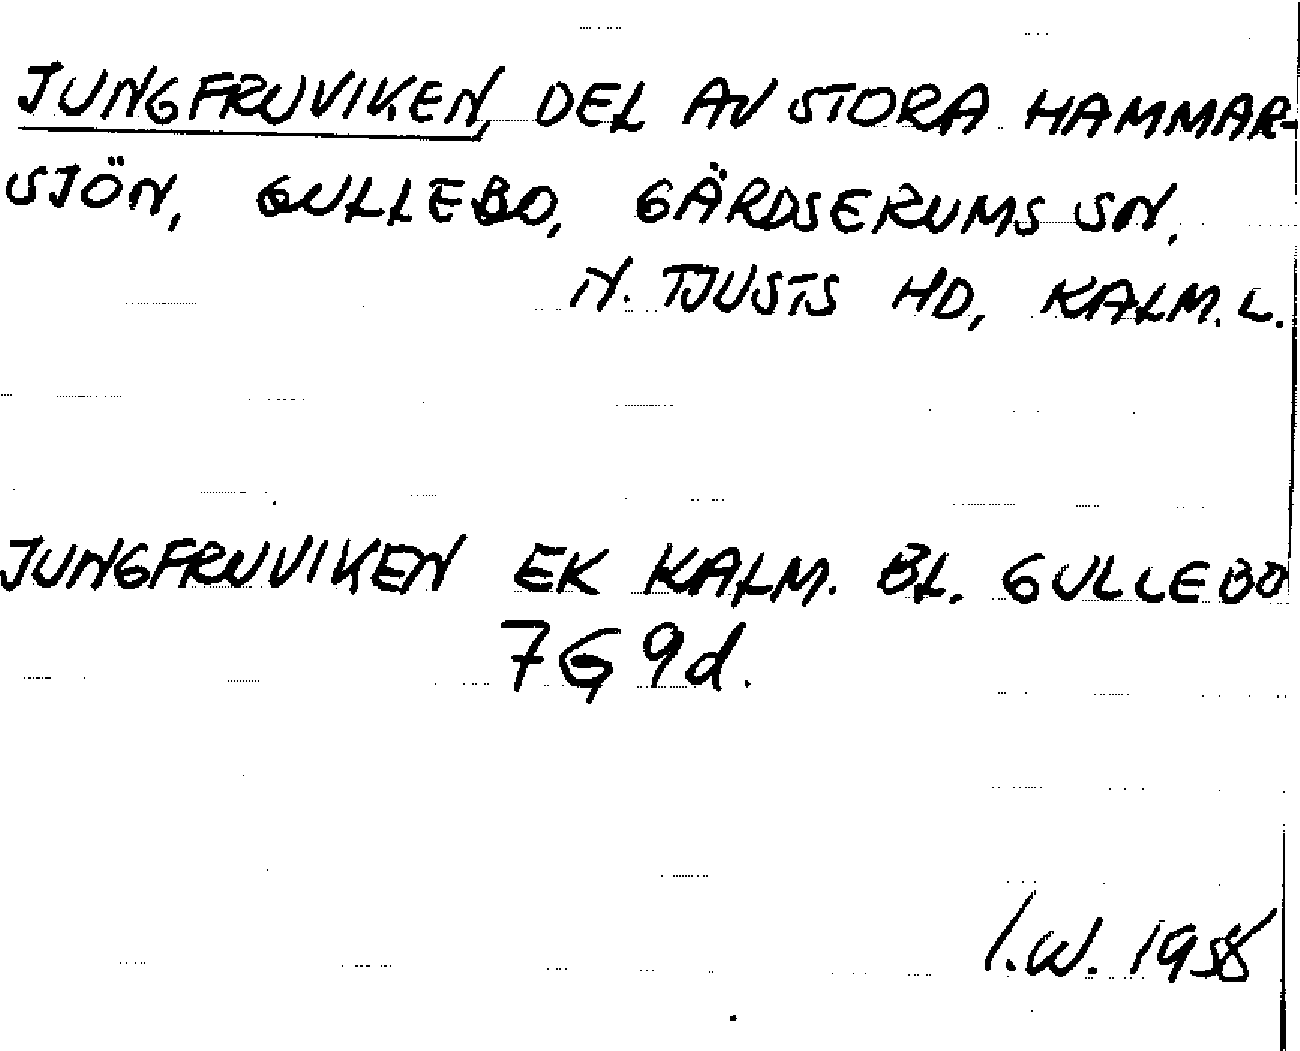 JUNGFRUVIKEN, DEL AV STORA HAMMAR-
SJÖN, GULLEBO, GÄRDSERUMS SN,
N. TJUSTS HD, KALM. L.
JUNGFRUVIKEN EK KALM. BL. GULLEBO
7G 9d.
I.W. 1958